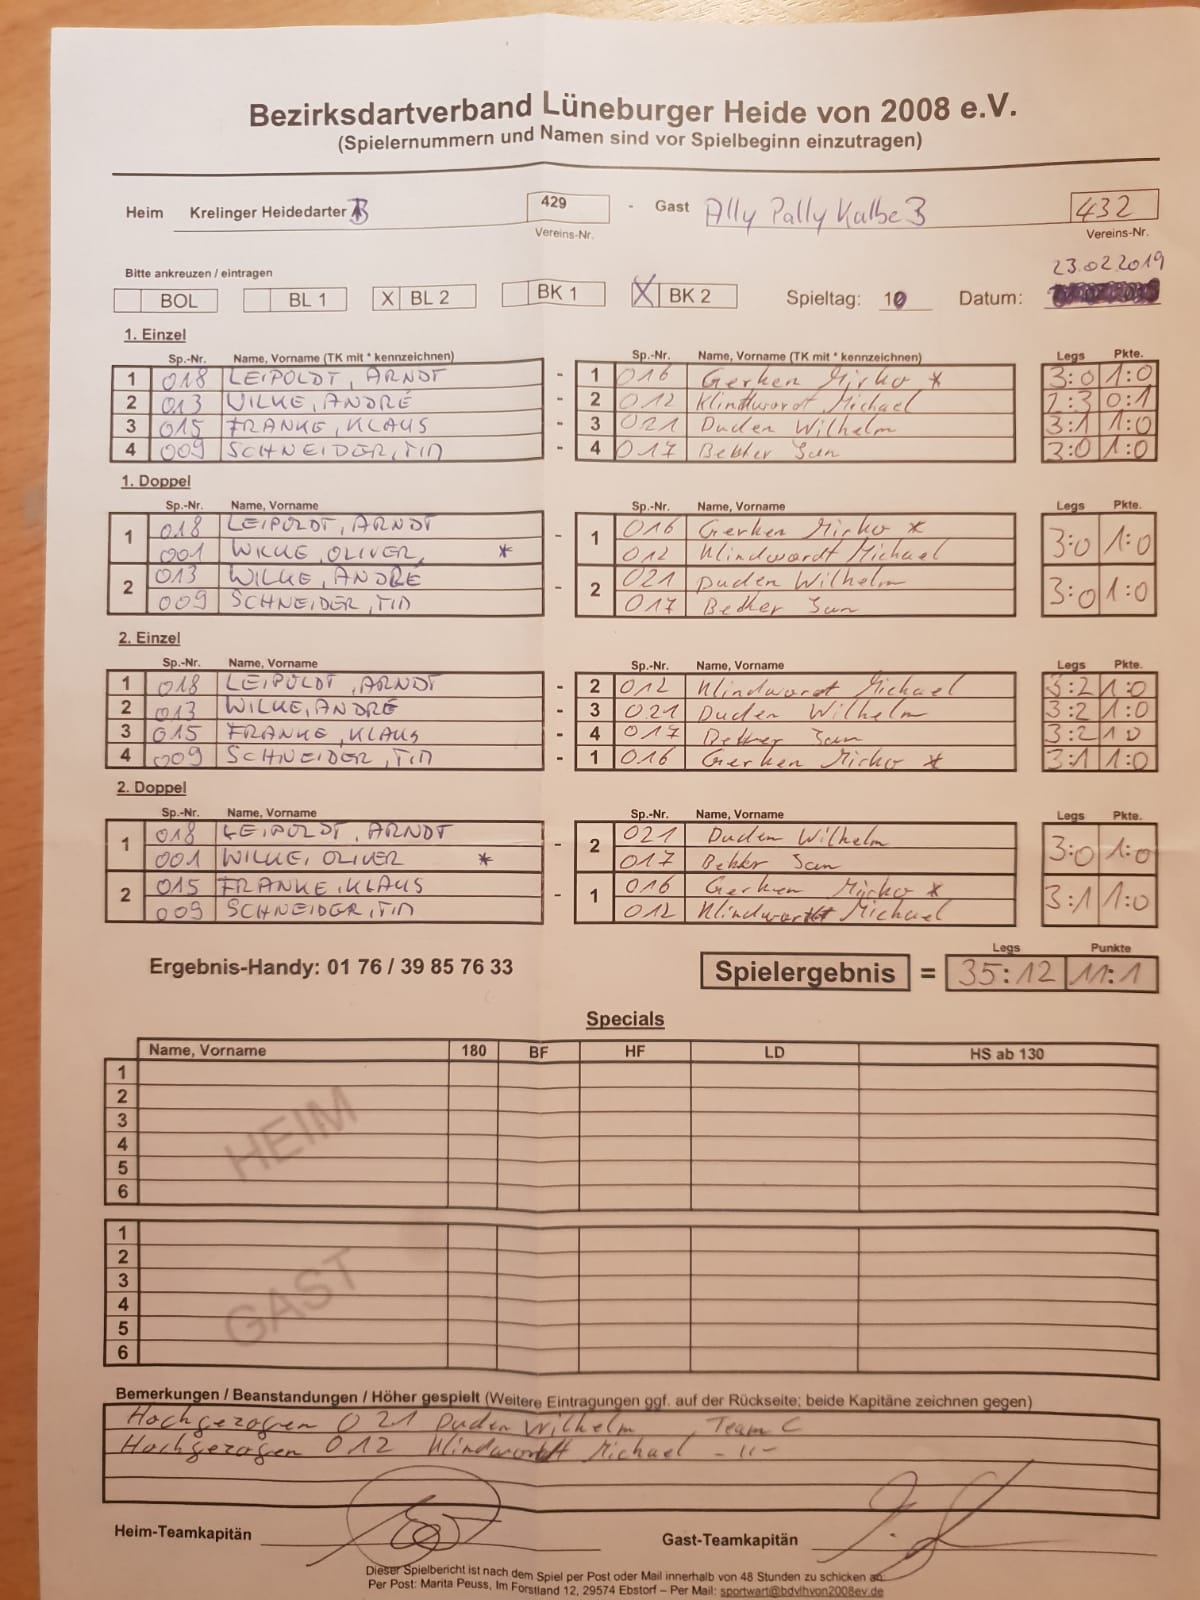 Bezirksdartverband Lüneburger Heide von 2008 e.V.
(Spielernummern und Namen sind vor Spielbeginn einzutragen)
Heim Krelinger Heidedarter B 429 - Gast Ally Pally Kalbe 3 432
Vereins-Nr. Vereins-Nr.
Bitte ankreuzen / eintragen 23.02.2019
BOL BL 1 X BL 2 BK 1 X BK 2 Spieltag: 10 Datum:
1. Einzel
Sp.-Nr. Name, Vorname (TK mit * kennzeichnen) Sp.-Nr. Name, Vorname (TK mit * kennzeichnen) Legs Pkte.
1 018 LEIPOLDT, ARNDT - 1 016 Gerken Mirko * 3:0 1:0
2 013 WILKE, ANDRÉ - 2 012 Klindwordt Michael 2:3 0:1
3 015 FRANKE, KLAUS - 3 021 Duden Wilhelm 3:1 1:0
4 009 SCHNEIDER, TIM - 4 017 Bekker Jan 3:0 1:0
1. Doppel
Sp.-Nr. Name, Vorname Sp.-Nr. Name, Vorname Legs Pkte.
1 018 LEIPOLDT, ARNDT - 1 016 Gerken Mirko * 3:0 1:0
001 WILKE, OLIVER, * 012 Klindwordt Michael
2 013 WILKE, ANDRÉ - 2 021 Duden Wilhelm 3:0 1:0
009 SCHNEIDER, TIM 017 Bekker Jan
2. Einzel
Sp.-Nr. Name, Vorname Sp.-Nr. Name, Vorname Legs Pkte.
1 018 LEIPOLDT, ARNDT - 2 012 Klindwordt Michael 3:2 1:0
2 013 WILKE, ANDRÉ - 3 021 Duden Wilhelm 3:2 1:0
3 015 FRANKE, KLAUS - 4 017 Bekker Jan 3:2 1 0
4 009 SCHNEIDER, TIM - 1 016 Gerken Mirko * 3:1 1:0
2. Doppel
Sp.-Nr. Name, Vorname Sp.-Nr. Name, Vorname Legs Pkte.
1 018 LEIPOLDT, ARNDT - 2 021 Duden Wilhelm 3:0 1:0
001 WILKE, OLIVER * 017 Bekker Jan
2 015 FRANKE, KLAUS - 1 016 Gerken Mirko * 3:1 1:0
009 SCHNEIDER, TIM 012 Klindwordt Michael
Legs Punkte
Ergebnis-Handy: 01 76 / 39 85 76 33 Spielergebnis = 35:12 11:1
Specials
Name, Vorname 180 BF HF LD HS ab 130
1
2
3
4
5
6
HEIM
1
2
3
4
5
6
GAST
Bemerkungen / Beanstandungen / Höher gespielt (Weitere Eintragungen ggf. auf der Rückseite; beide Kapitäne zeichnen gegen)
Hochgezogen 021 Duden Wilhelm, Team C
Hochgezogen 012 Klindwordt Michael - 11 -
Heim-Teamkapitän Gast-Teamkapitän
Dieser Spielbericht ist nach dem Spiel per Post oder Mail innerhalb von 48 Stunden zu schicken an
Per Post: Marita Peuss, Im Forstland 12, 29574 Ebstorf – Per Mail: sportwart@bdvlhvon2008ev.de